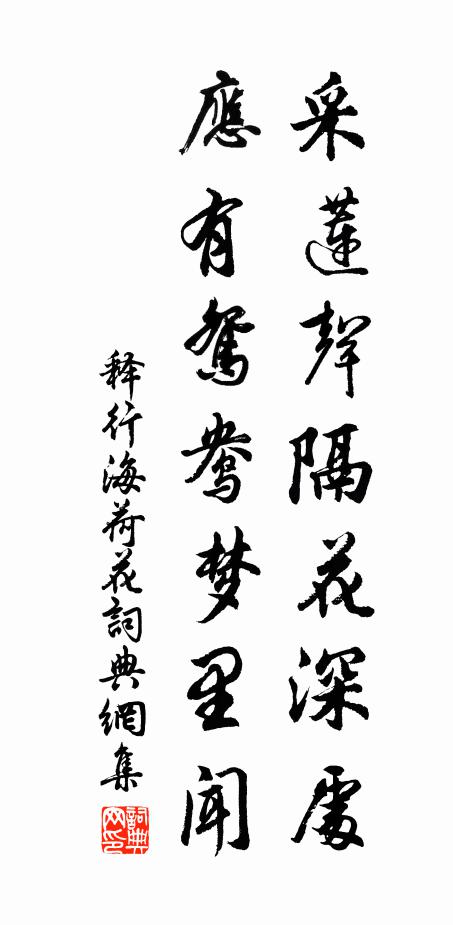 采蓮聲隔花深處
應有鴛鴦梦里聞
释行海荷花詞典網集
詞典网印